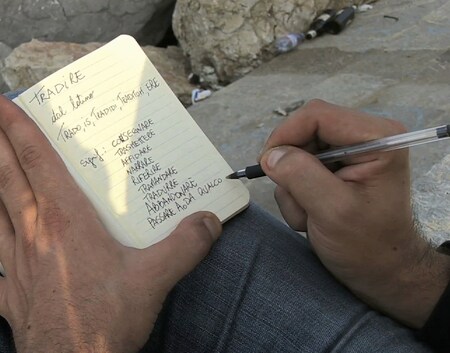 TRADIRE
dal latino
TRADO, IS, TRADIDI, TRADITUM, ERE
signif: CONSEGNARE
TRASMETTERE
AFFIDARE
NARRARE
RIFERIRE
TRAMANDARE
TRADURRE
ABBANDONARE
PASSARE A, DA QUALCO